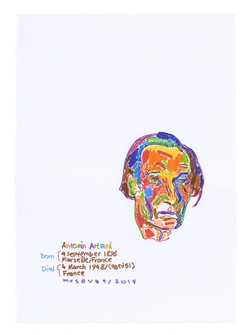 Antonin Artaud
Born { 4 September 1896
Marseille, France
Died { 4 March 1948/(aged 51)
France
mosavs4/2019